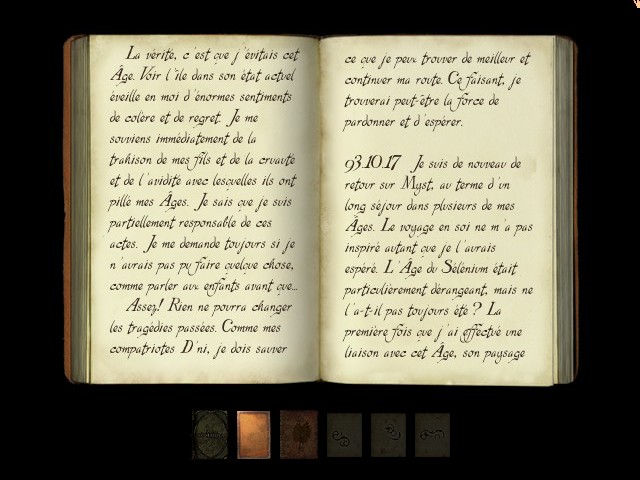 La vérité, c'est que j'évitais cet
Âge. Voir l'île dans son état actuel
éveille en moi d'énormes sentiments
de colère et de regret. Je me
souviens immédiatement de la
trahison de mes fils et de la cruauté
et de l'avidité avec lesquelles ils ont
pillé mes Âges. Je sais que je suis
partiellement responsable de ces
actes. Je me demande toujours si je
n'aurais pas pu faire quelque chose,
comme parler aux enfants avant que...
Assez! Rien ne pourra changer
les tragédies passées. Comme mes
compatriotes D'ni, je dois sauver
ce que je peux trouver de meilleur et
continuer ma route. Ce faisant, je
trouverai peut-être la force de
pardonner et d'espérer.
93.10.17 Je suis de nouveau de
retour sur Myst, au terme d'un
long séjour dans plusieurs de mes
Âges. Le voyage en soi ne m'a pas
inspiré autant que je l'aurais
espéré. L'Âge du Sélénium était
particulièrement dérangeant, mais ne
l'a-t-il pas toujours été ? La
première fois que j'ai effectué une
liaison avec cet Âge, son paysage